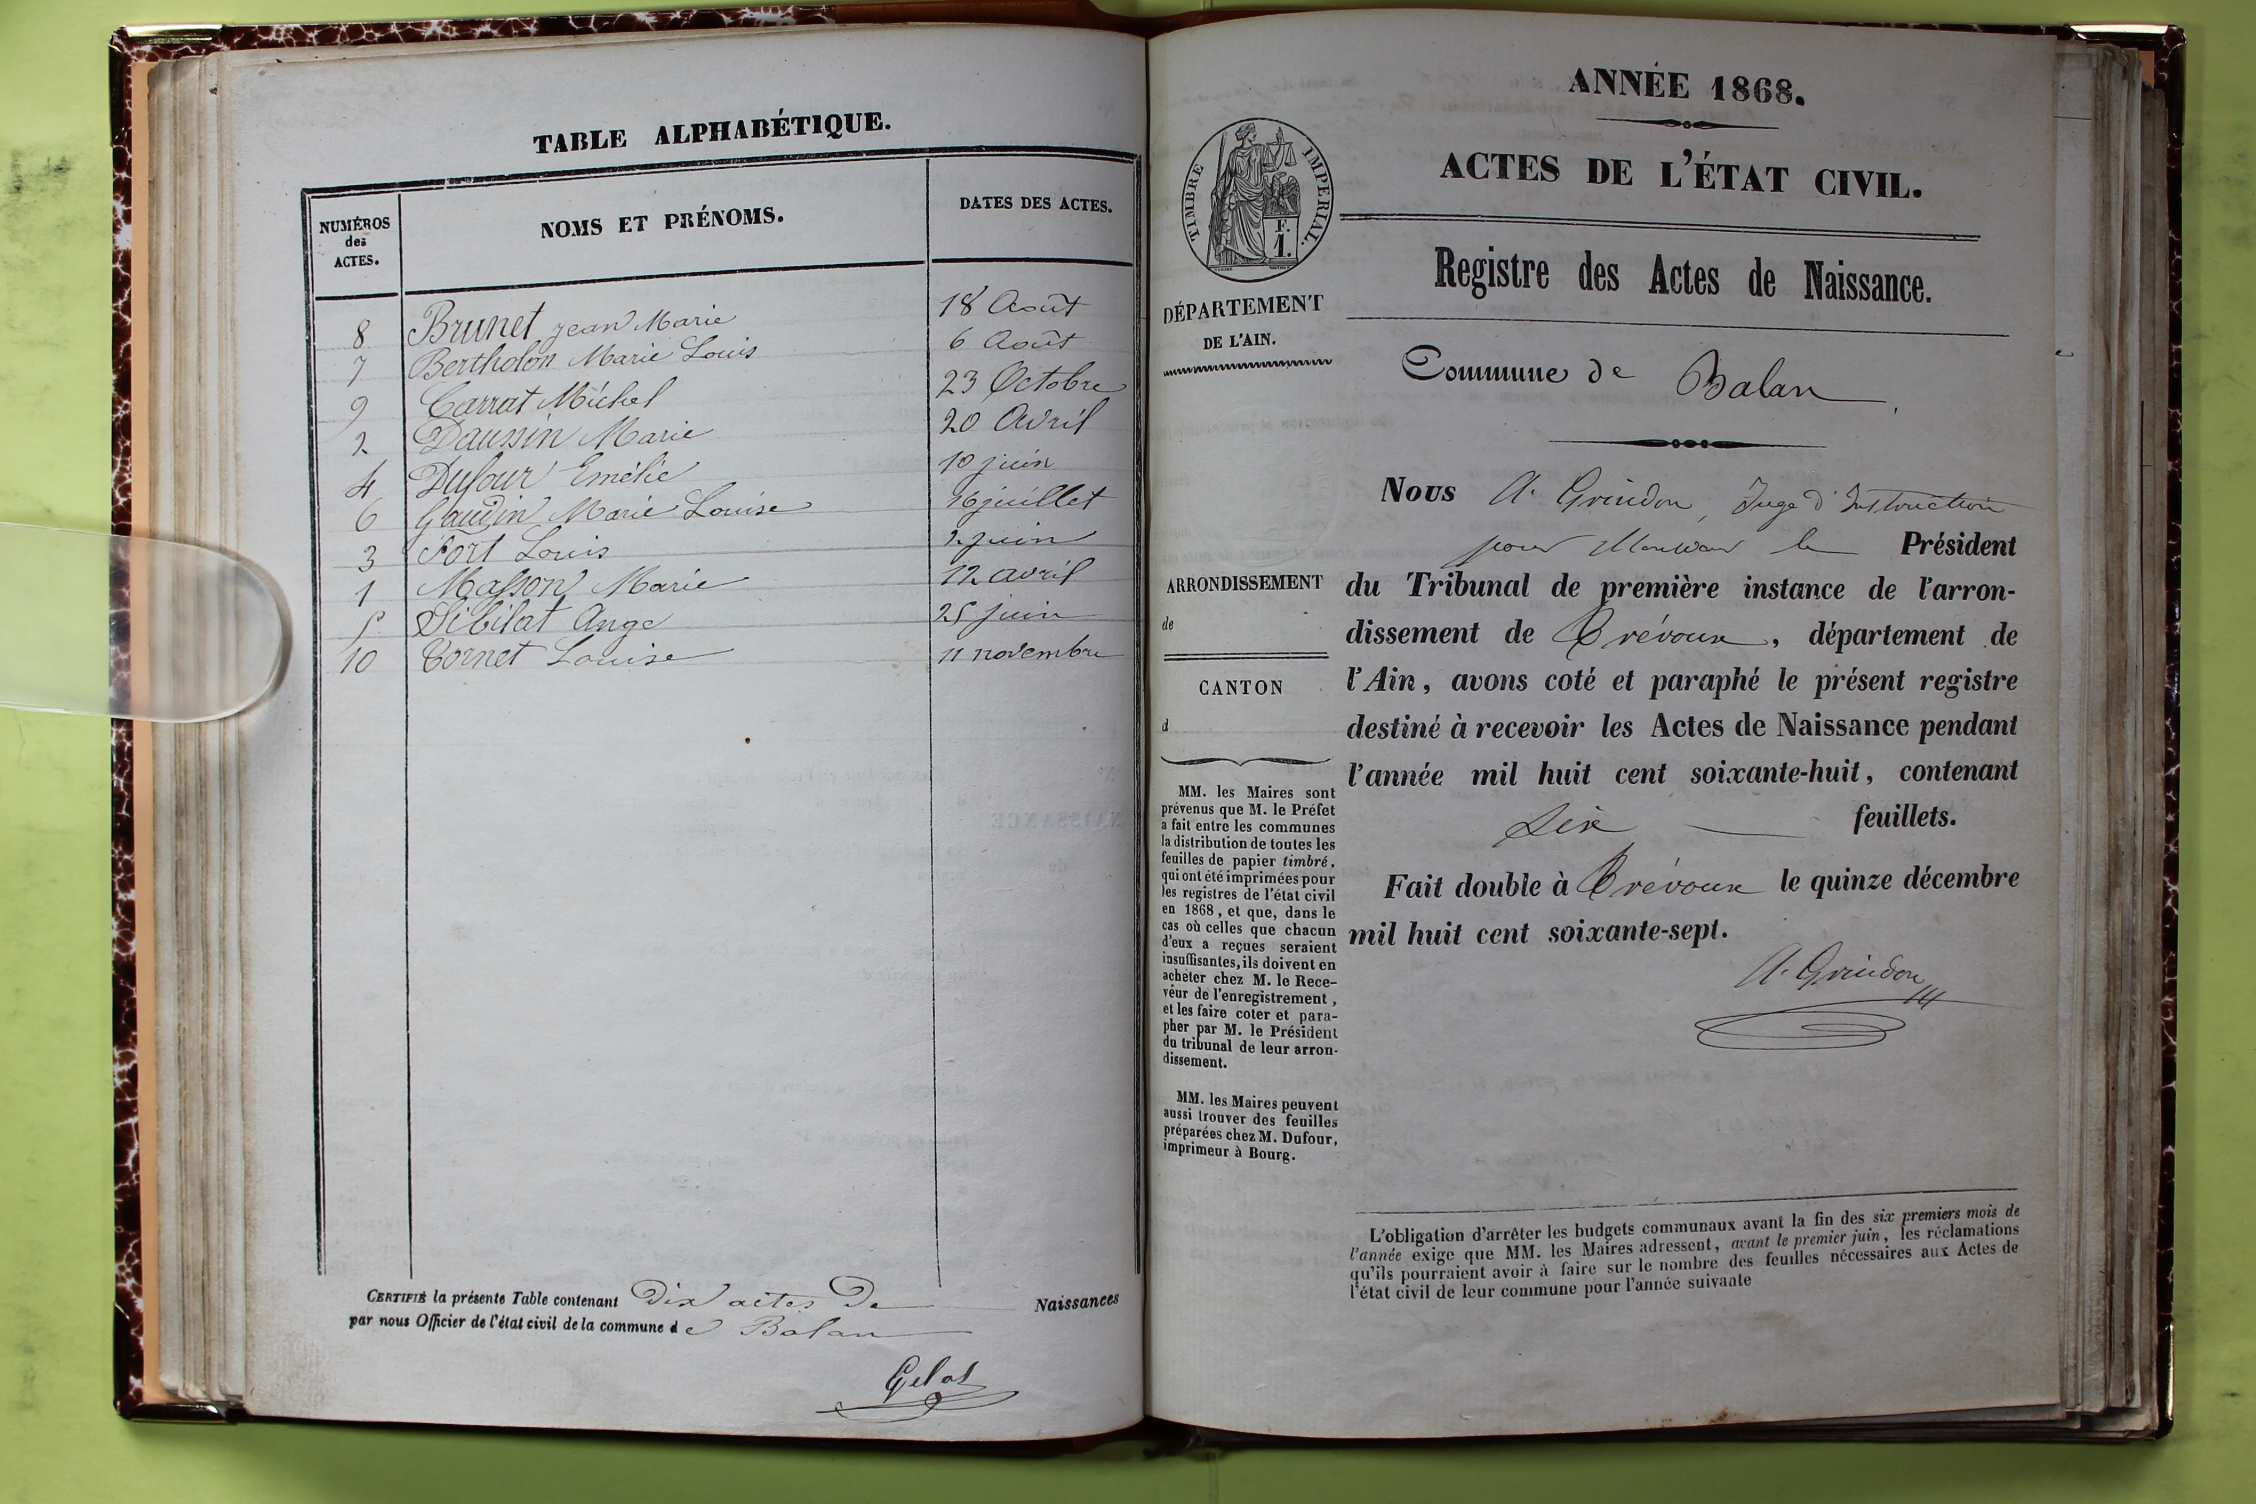 TABLE ALPHABÉTIQUE.
NUMÉROS
des
ACTES.
NOMS ET PRÉNOMS.
DATES DES ACTES.
8 Brunet jean Marie 18 Août
7 Bertholon Marie Louis 6 Août
9 Carrat Michel 23 Octobre
2 Daussin Marie 20 Avril
4 Dufour Emélie 10 juin
6 Gaudin Marie Louise 16 juillet
3 Fort Louis 2 juin
1 Masson Marie 12 avril
5 Sibilat Ange 25 juin
10 Cornet Louise 11 novembre
CERTIFIÉ la présente Table contenant Dix actes De Naissances
par nous Officier de l'état civil de la commune de Balan
Gelas
ANNÉE 1868.
ACTES DE L'ÉTAT CIVIL.
TIMBRE IMPERIAL.
F.
1.
Registre des Actes de Naissance.
DÉPARTEMENT
DE L'AIN.
Commune de Balan
ARRONDISSEMENT
de
CANTON
d
MM. les Maires sont
prévenus que M. le Préfet
a fait entre les communes
la distribution de toutes les
feuilles de papier timbré,
qui ont été imprimées pour
les registres de l'état civil
en 1868, et que, dans le
cas où celles que chacun
d'eux a reçues seraient
insuffisantes, ils doivent en
acheter chez M. le Rece-
veur de l'enregistrement,
et les faire coter et para-
pher par M. le Président
du tribunal de leur arron-
dissement.
MM. les Maires peuvent
aussi trouver des feuilles
préparées chez M. Dufour,
imprimeur à Bourg.
Nous A. Grindon, Juge d'Instruction
pour Monsieur le Président
du Tribunal de première instance de l'arron-
dissement de Trévoux, département de
l'Ain, avons coté et paraphé le présent registre
destiné à recevoir les Actes de Naissance pendant
l'année mil huit cent soixante-huit, contenant
six feuillets.
Fait double à Trévoux le quinze décembre
mil huit cent soixante-sept.
A. Grindon
L'obligation d'arrêter les budgets communaux avant la fin des six premiers mois de
l'année exige que MM. les Maires adressent, avant le premier juin, les réclamations
qu'ils pourraient avoir à faire sur le nombre des feuilles nécessaires aux Actes de
l'état civil de leur commune pour l'année suivante